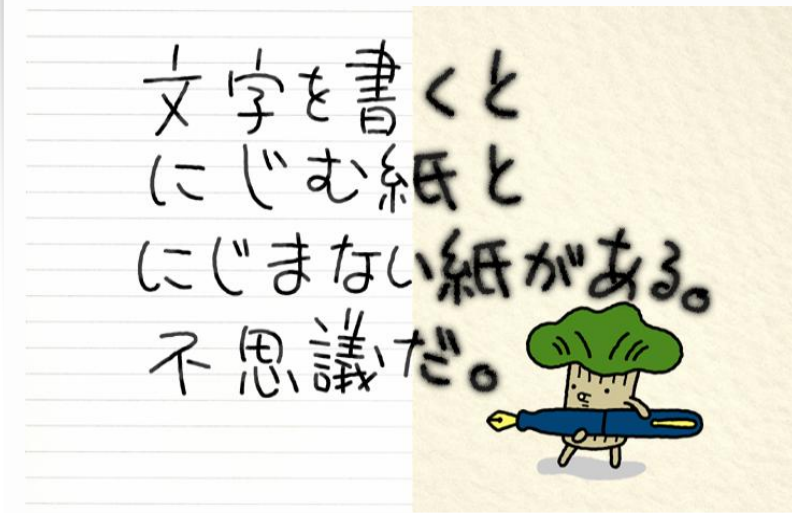 文字を書くと
にじむ紙と
にじまない紙がある。
不思議だ。